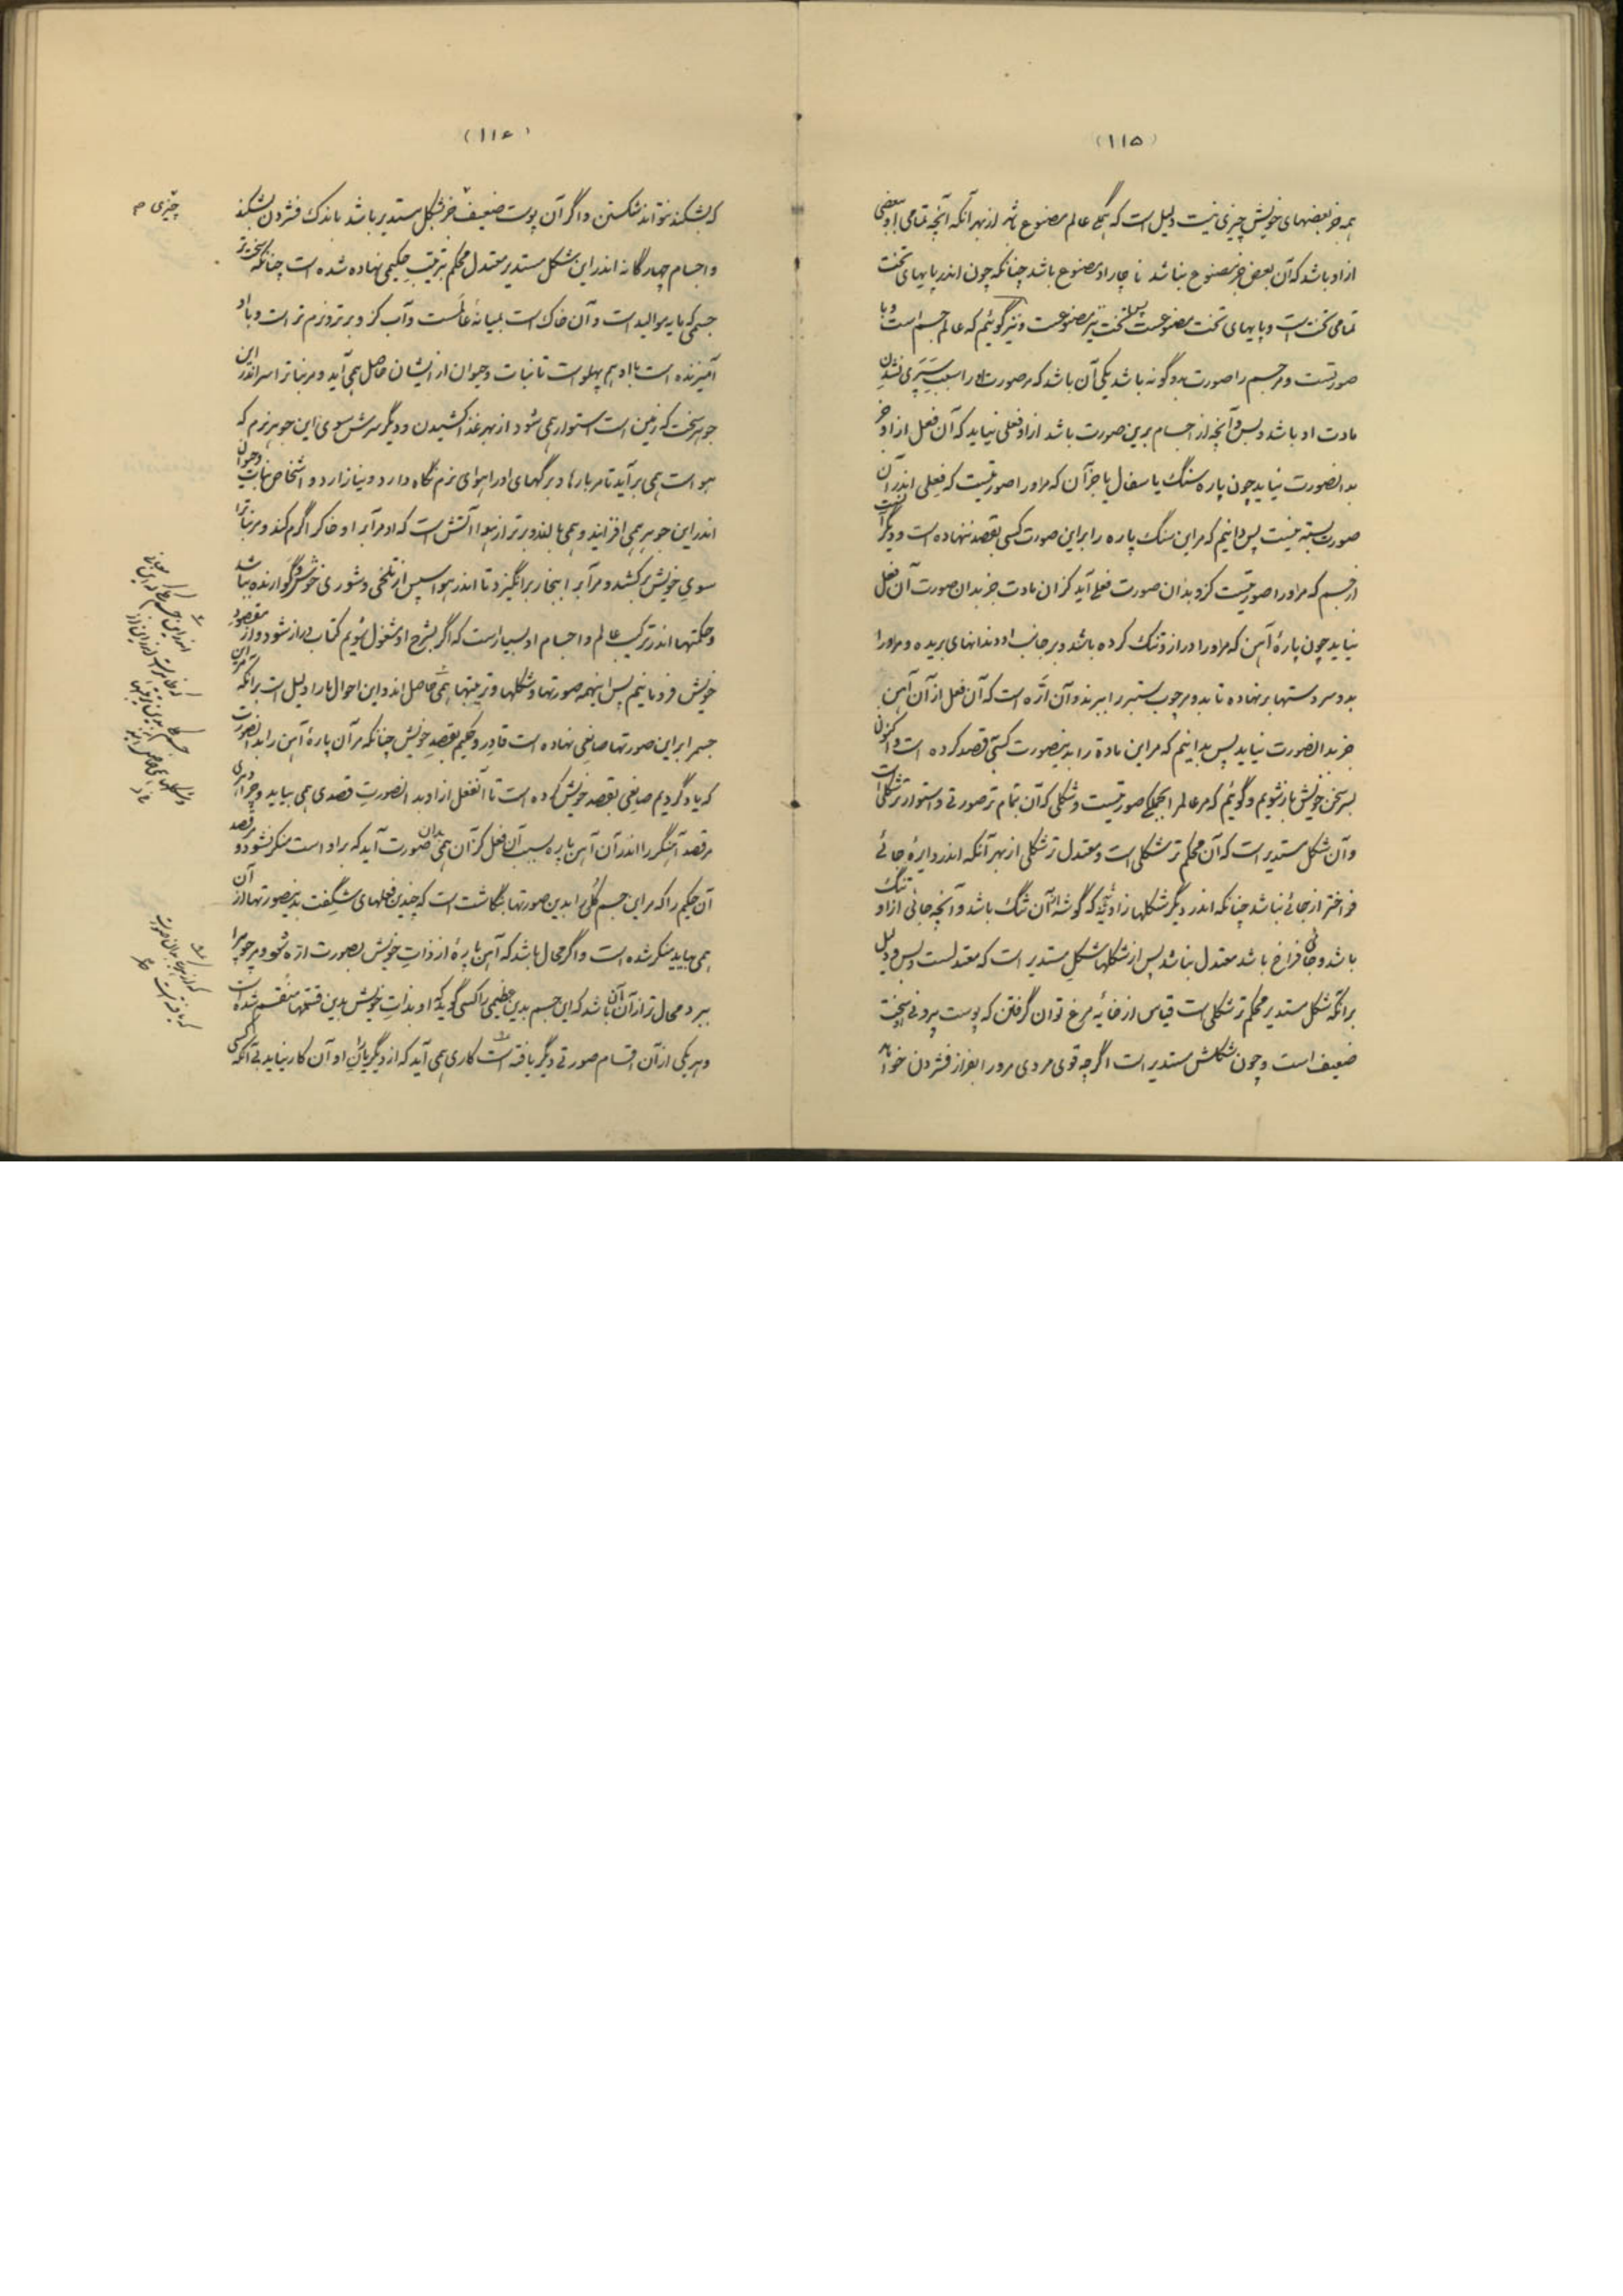 (۱۱۵)
همه جز بعضهای خویش چیزی نیست دلیل است که همگی عالم مصنوع باشد از بهر آنکه آنچه تمامی او ببعضی
از او باشد که آن بعض جز مصنوع نباشد ناچار او مصنوع باشد چنانکه چون اندر پایهای تخت
تمامی تخت است و پایهای تخت مصنوعست پس تخت نیز مصنوعست و نیز گوئیم که عالم جسم است و با
صورتست و مر جسم را صورت بدو گونه باشد یکی آن باشد که مر صورت او را سبب سپری نشدن
مادت او باشد و بس و آنچه از اجسام برین صورت باشد از او فعلی نیاید که آن فعل از او جز
بدانصورت نیاید چون پاره سنگ یا سفال یا جز آن که مر او را صورتیست که فعلی اندر آن
صورت بسته نیست پس دانیم که مر این سنگ پاره را بر این صورت کسی بقصد ننهاده است و دیگر
از جسم که مر او را صورتیست کزو بدان صورت فعلی آید کزان مادت جز بدان صورت آن فعل
نیاید چون پارهٔ آهن که مر او را دراز و تنک کرده باشند و بر جانب او دندانهای بریده و مر او را
بدو سر دستها بر نهاده تا بدو مر چوب ستبر را ببرند و آن ارّه است که آن فعل از آن آهن
جز بدانصورت نیاید پس بدانیم که مر این مادة را بدینصورت کسی قصد کرده است و اکنون
بسر سخن خویش باز شویم و گوئیم که مر عالم را بجملگی صورتیست و شکلی که آن تمام تر صورتی و استوار تر شکلی است
و آن شکل مستدیر است که آن محکم تر شکلی است و معتدل تر شکلی از بهر آنکه اندر دایره جائی
فراختر از جائی نباشد چنانکه اندر دیگر شکلها زاویهٔ که گوشه از آن تنگ باشد و آنچه جائی از او تنگ
باشد و جائی فراخ باشد معتدل نباشد پس از شکلها شکل مستدیر است که معتدلست و بس و دلیل
بر آنکه شکل مستدیر محکم تر شکلی است قیاس از خایهٔ مرغ توان گرفتن که پوست بیرونی سخت
ضعیف است و چون شکلش مستدیر است اگر چه قوی مردی مر او را بفراز فشردن خواهد
(۱۱۶)
که بشکند نتواند شکستن و اگر آن پوست ضعیف جز بشکل مستدیر باشد باندک فشردن بشکند
و اجسام چهارگانه اندر این شکل مستدیر معتدل محکم بترتیب حکیمی نهاده شده است چنانکه سخت تر
جسمی که مایه موالید است و آن خاک است بمیانهٔ عالمست و آب کزو برتر و نرم تر است و با او
آمیزنده است با او هم پهلو است تا نبات و حیوان از ایشان حاصل همی آید و مر نبات را سر اندر این
جوهر سخت که زمین است استوار همی شود از بهر غذا کشیدن و دیگر سرش سوی این جوهر نرم که
هواست همی بر آید تا مر بارها و برگهای او را هوای نرم نگاه دارد و نیازارد و اشخاص نبات و حیوان
اندر این جوهر همی افزایند و همی بالند و برتر از هوا آتش است که او مر آب را و خاک را گرم کند و مر نبات را
سوی خویش بر کشد و مر آب را ببخار بر انگیزد تا اندر هوا سپس از تلخی و شوری خوش و گوارنده باشد
و حکمتها اندر ترکیب عالم و اجسام او بسیار است که اگر بشرح او مشغول شویم کتاب دراز شود و از مقصود
خویش فرو مانیم پس اینهمه صورتها و شکلها و ترتیبها همی حاصل اند و این احوال ما را دلیل است بر آنکه مر این
جسم را بر این صورتها صانعی نهاده است قادر و حکیم بقصد خویش چنانکه مر آن پارهٔ آهن را بدانصورت
که یاد کردیم صانعی بقصد خویش کرده است تا آنفعل از او بدانصورت قصدی همی بیاید و هر که
مر قصد آهنگر را اندر آن آهن پاره بسبب آن فعل کز آن همی بدان صورت آید که بر او است منکر نشود و مر قصد
آن حکیم را که مر این جسم کلی را بدین صورتها بنگاشت است که چندین فعلهای شگفت بدینصورتها از آن
همی بیاید منکر شده است و اگر محال باشد که آهن پارهٔ از ذات خویش بصورت ارّه شود و مر چوب را
ببرد محال تر از آن آن باشد که این جسم بدین عظیمی را کسی گوید که او بذات خویش بدین قسمتها منقسم شده است
و هر یکی از آن اقسام صورتی دیگر یافته است کاری همی آید که از دیگر یاران او آن کار نیاید بی آنکه کسی
چیزی م